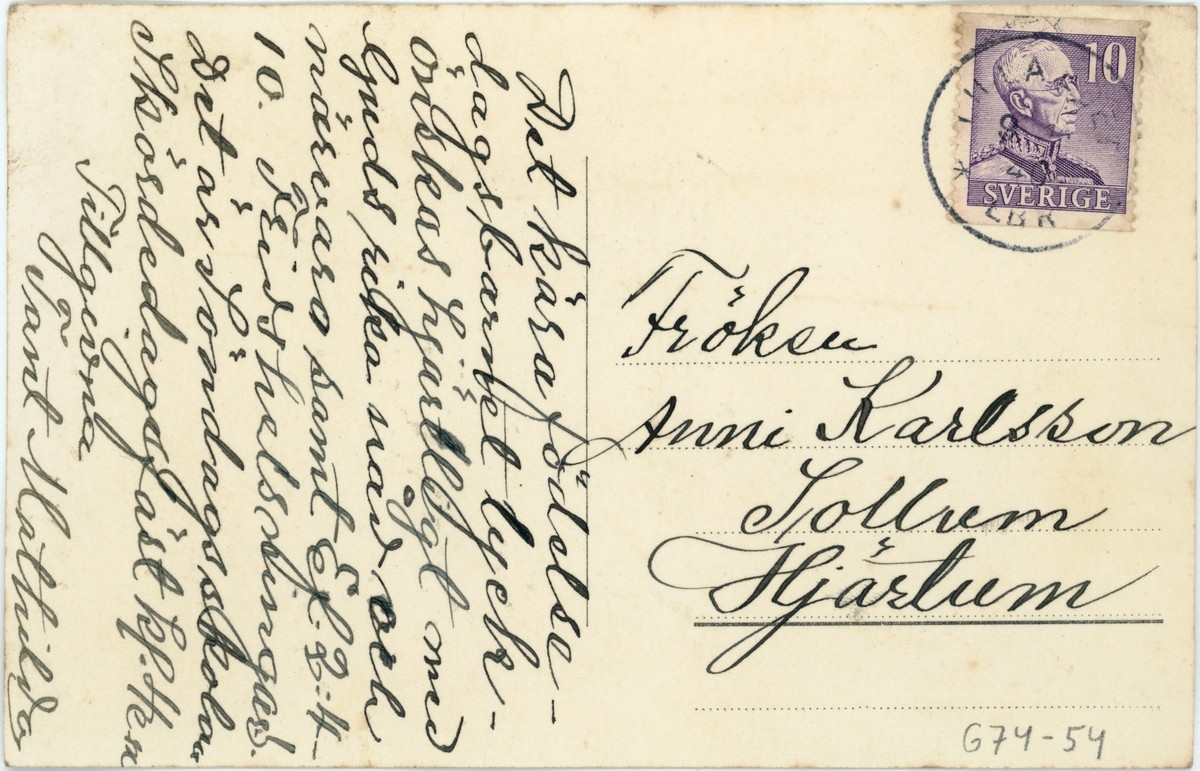 Det kära födelse-
dagsbarnet lyck-
önskas hjärtligt med
Guds rika nåd och
närvaro samt Ef. 2:4-
10. Fridshelsningas.
Det är söndagsskolans
Skördedagsfäst kl. 4 em
Tillgivna
Tant Mathilda
10
SVERIGE
Fröken
Anni Karlsson
Sollum
Hjärtum
G74-54